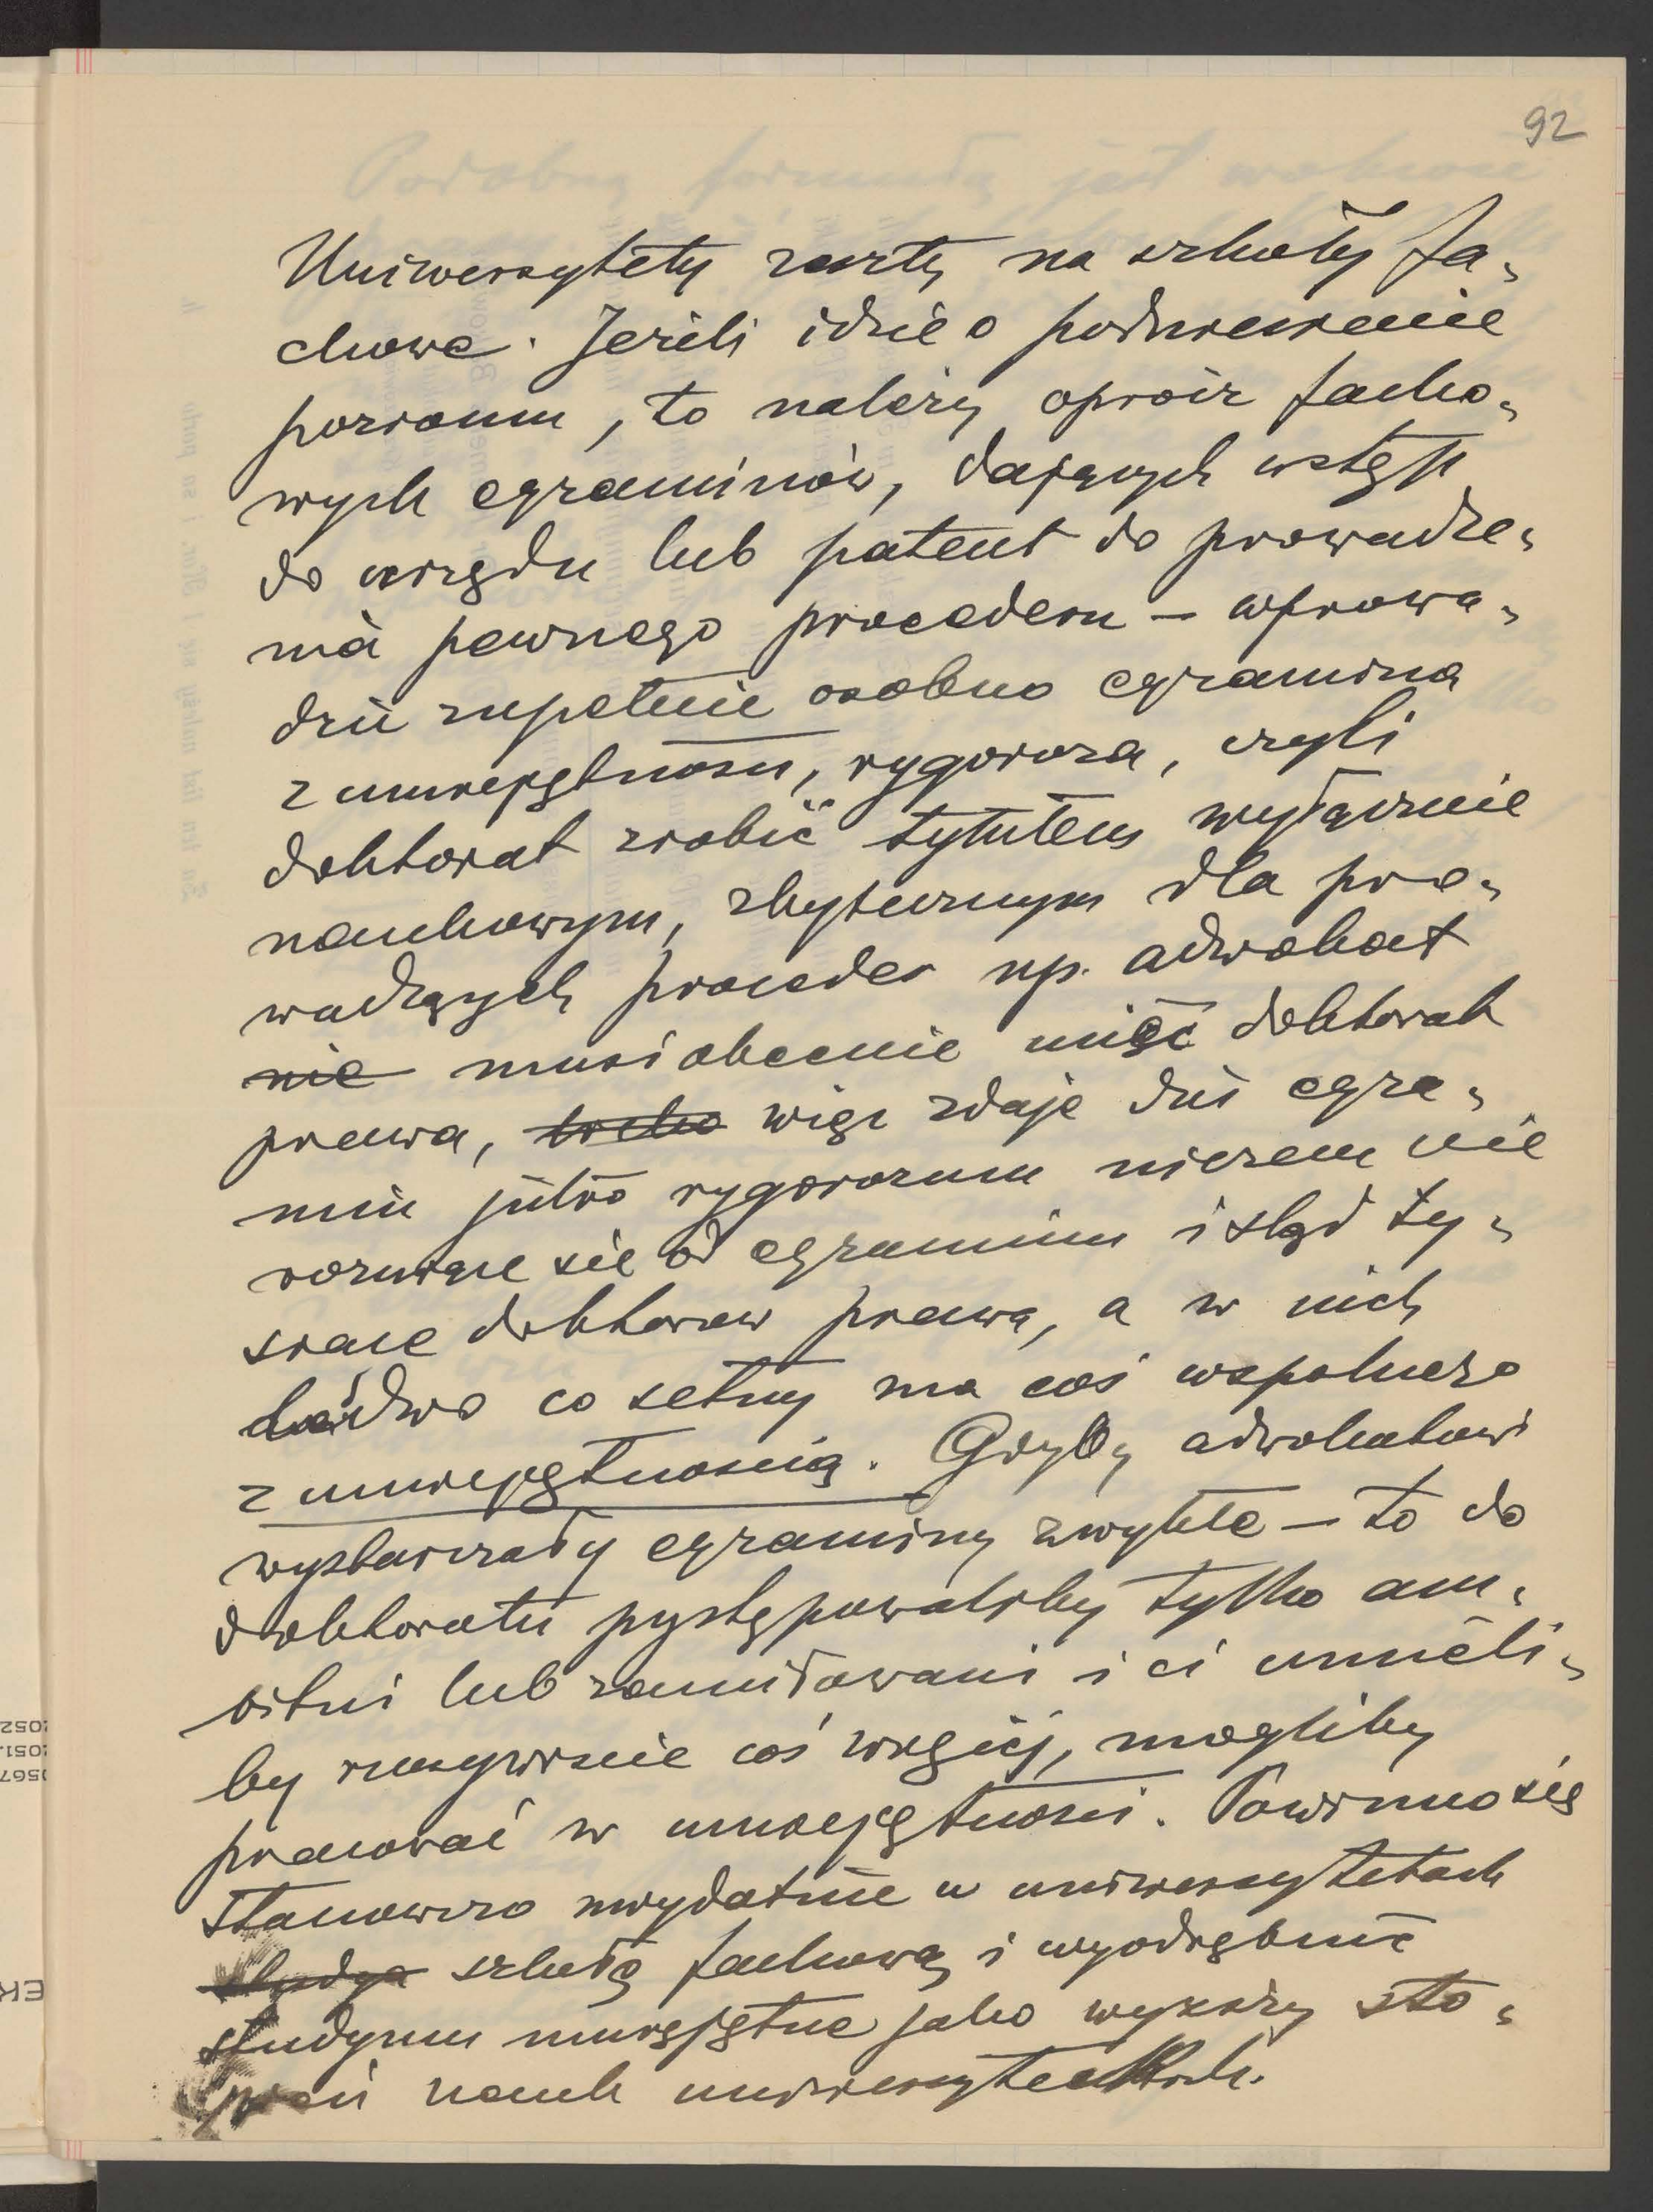 92
Uniwersytety zeszły na szkoły fa-
chowe. Jeżeli idzie o podniesienie
poziomu, to należy oprócz facho-
wych egzaminów, dających wstęp
do urzędu lub patent do prowadze-
nia pewnego procederu – wprowa-
dzić zupełnie osobno egzamina
z umiejętności, rygoroza, czyli
doktorat zrobić tytułem wyłącznie
naukowym, zbytecznym dla pro-
wadzących proceder np. adwokat
nie musi obecnie mieć doktorat
prawa, więc zdaje dziś egza-
min jutro rygorozum niczem nie
rozniące się od egzaminu i stąd ty-
siące doktorów prawa, a w nich
ledwo co setny ma coś wspólnego
z umiejętnością. Gdyby adwokatowi
wystarczały egzaminy zwykłe – to do
doktoratu przystępowaliby tylko am-
bitni lub zamiłowani i ci umieli-
by rzeczywiście coś więcej, mogliby
pracować w umiejętności. Powinno się
stanowczo uwydatnić w uniwersytetach
szkołę fachową i wyodrębnić
studyum umiejętne jako wyższy sto-
pień nauk uniwersyteckich.